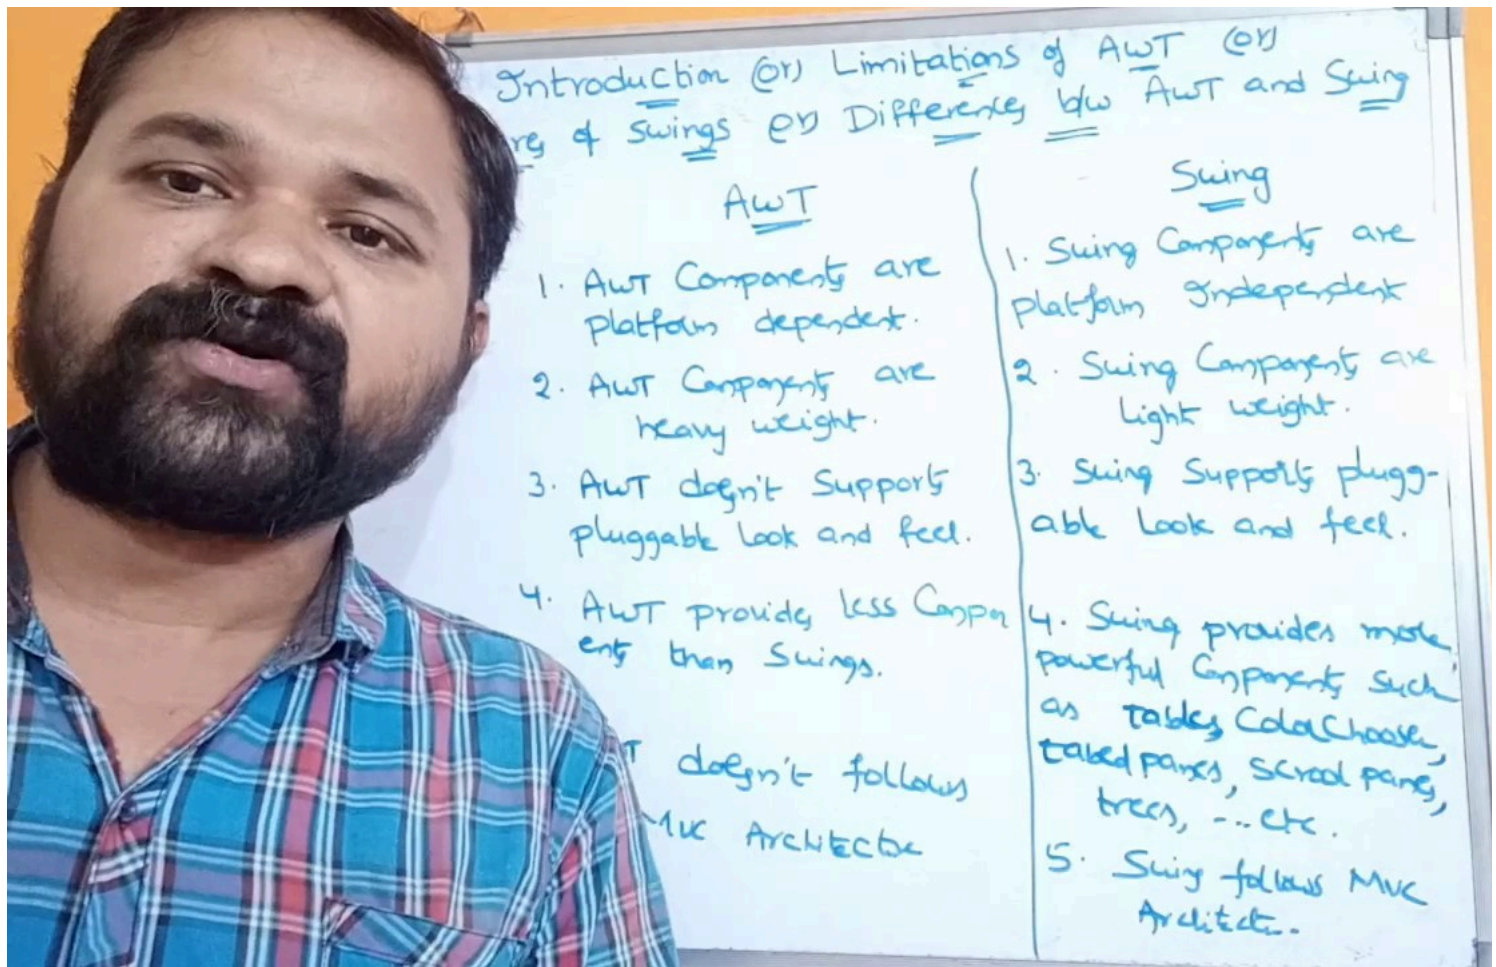 Introduction (or) Limitations of AWT (or)
res of Swings (or) Differences b/w AWT and Swing
AWT
1. AWT Components are
platform dependent.
2. AWT Components are
heavy weight.
3. AWT doesn't Supports
pluggable Look and feel.
4. AWT provides less Compon
ents than Swings.
T doesn't follows
MVC Architectue
Swing
1. Swing Components are
platform Independent
2. Swing Components are
Light weight.
3. Swing Supports plugg-
able Look and feel.
4. Swing provides more
powerful Components such
as tables, ColorChooser,
tabed panes, scrool panes,
trees, ... etc.
5. Swing follows MVC